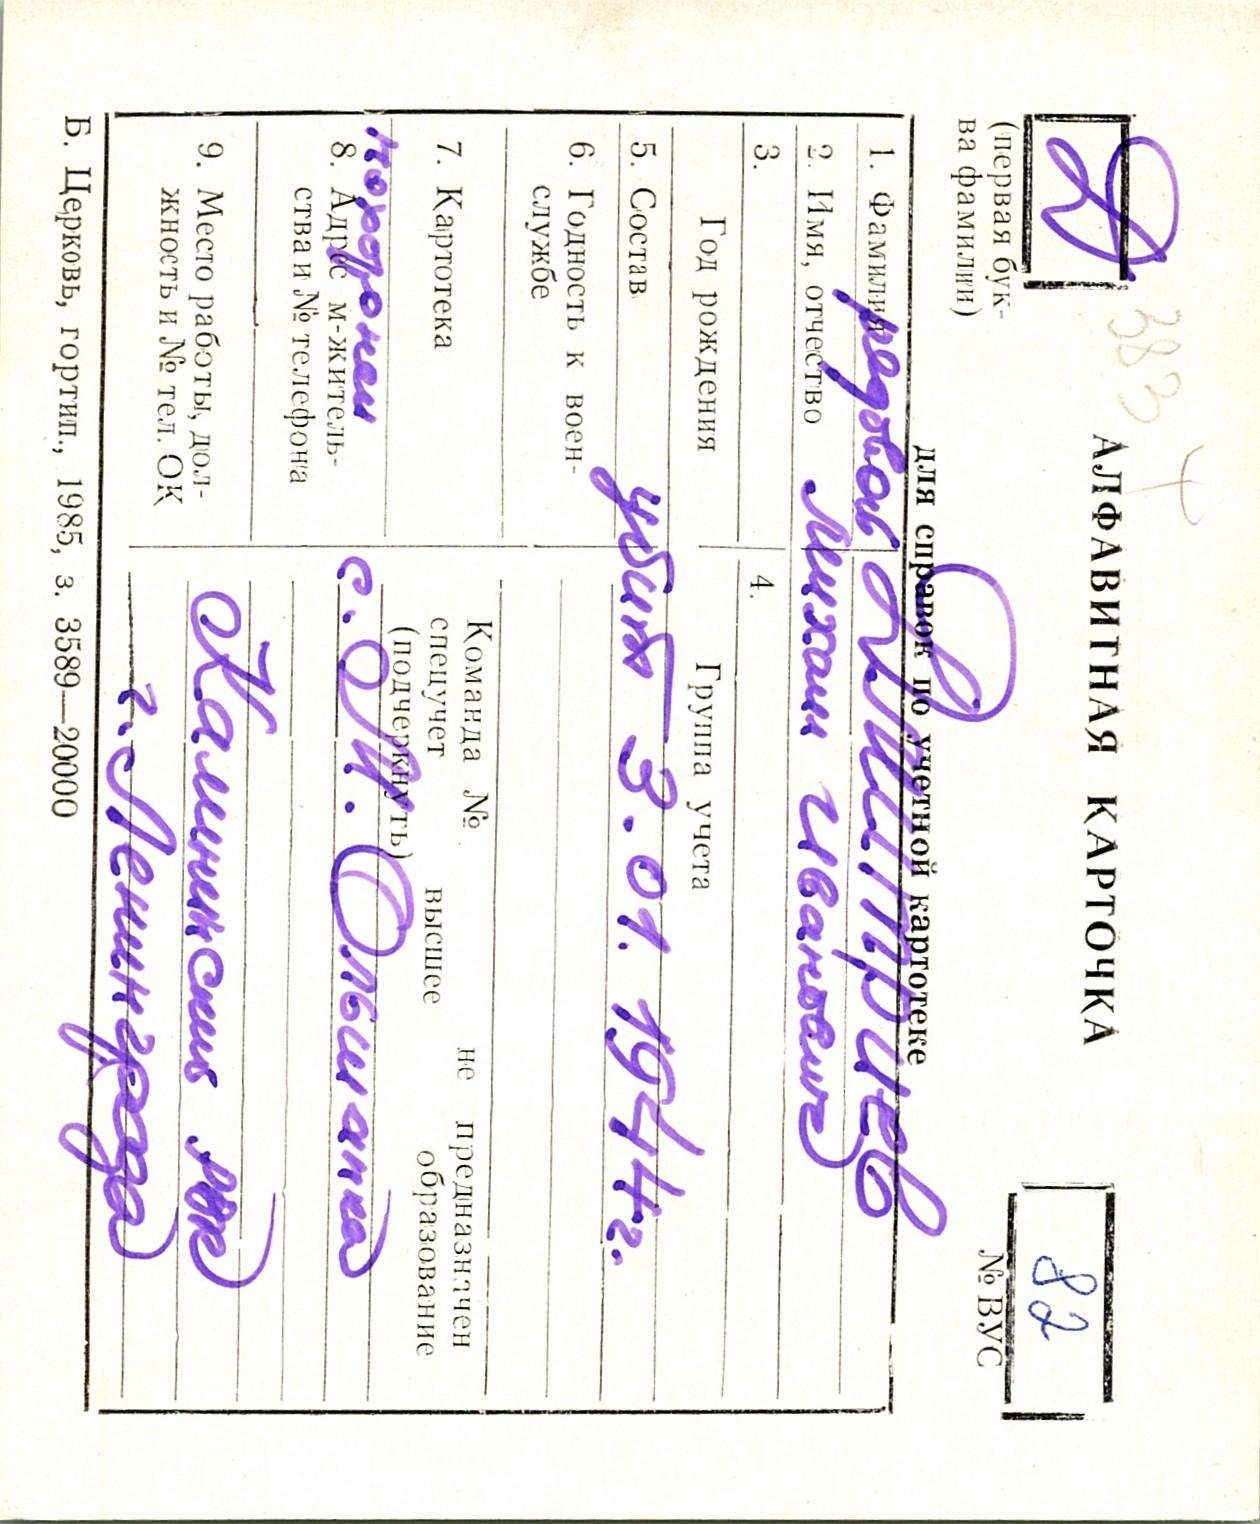 Д
(первая бук-
ва фамилии)
383
АЛФАВИТНАЯ КАРТОЧКА
для справок по учетной картотеке
82
№ ВУС
1. Фамилия рядовой Дмитриев
2. Имя, отчество Михаил Иванович
3.
Год рождения
4.
Группа учета
5. Состав убит 3.01.1944г.
6. Годность к воен-
службе
7. Картотека
Команда № не предназначен
спецучет высшее образование
(подчеркнуть)
похоронен
8. Адрес м-житель-
ства и № телефона
с. М. Ольшанка
9. Место работы, дол-
жность и № тел. ОК
Калининским РВК
г. Ленинграда
Б. Церковь, гортип., 1985, з. 3589—20000